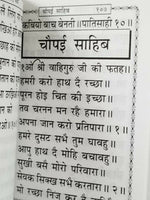 चौपई साहिब १०३
कबियो बाच बेनती॥ पातिसाही १०॥
चौपई साहिब
१ओं श्री वाहिगुरू जी की फतह॥
हमरी करो हाथ दै रच्छा॥
पूरन होइ चित की इच्छा॥
तव चरनन मन रहै हमारा॥
अपना जान करो प्रतिपारा॥१॥
हमरे दुसट सभै तुम घावहु॥
आपु हाथ दै मोहि बचावहु॥
सुखी बसै मोरो परिवारा॥
सेवक सिक्ख सभै करतारा॥२॥
मो रच्छा निज कर दै